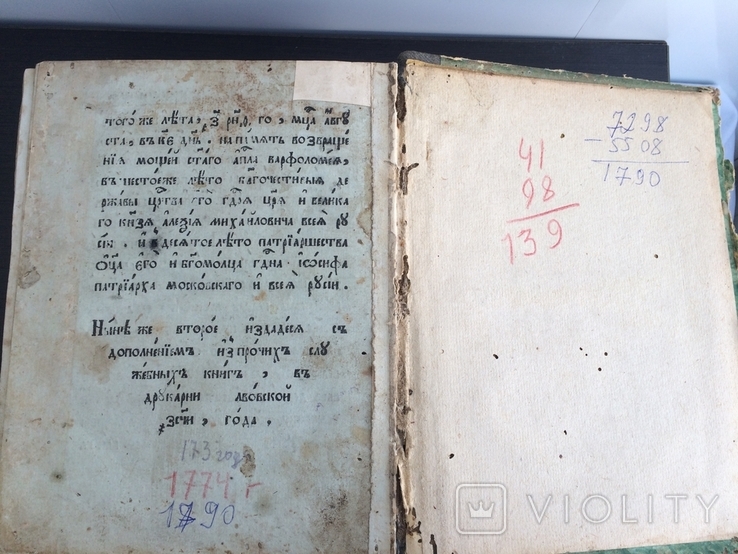 тогоже лѣта, ҂зрнд го, мца авгу
ста, въ к҃е днь. на память возвраще
нїя мощей стаго апла варфоломеа,
въ шестоеже лѣто благочестивыя де
ржавы цртва его гдря цря и велика
го кнзя алеѯїа михайловича всея ру
сїи. и в десятое лѣто патрїаршества
оца его и бгомолца гдна іѡсифа
патрїарха московскаго и всея русїи.
Нынѣ же второе издадеся съ
дополненїемъ из прочихъ слу
жебныхъ книгъ, въ
друкарни лвовской
҂зсчи, года,
173 году
1774 г
1790
7298
-5508
1790
41
98
139
VIOLITY